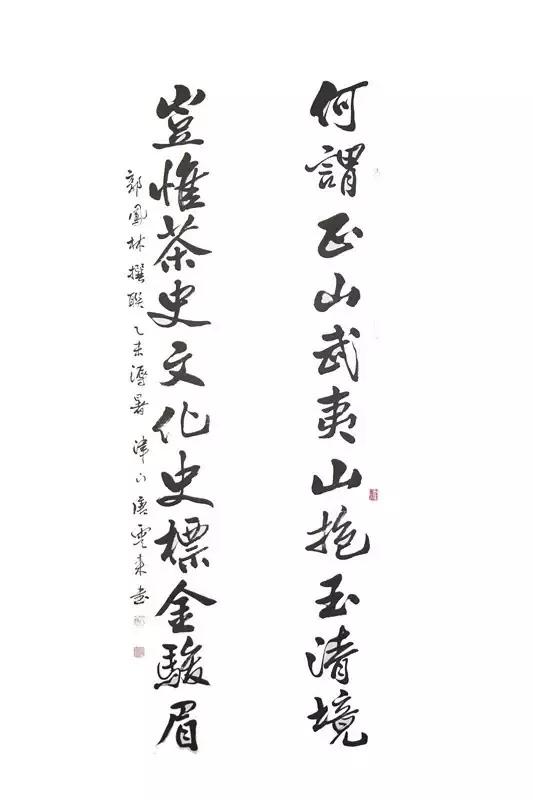 何謂正山武夷山抱玉清境
豈惟茶史文化史標金駿眉
郭鳳林撰聯 乙未溽暑 津门唐雲来書